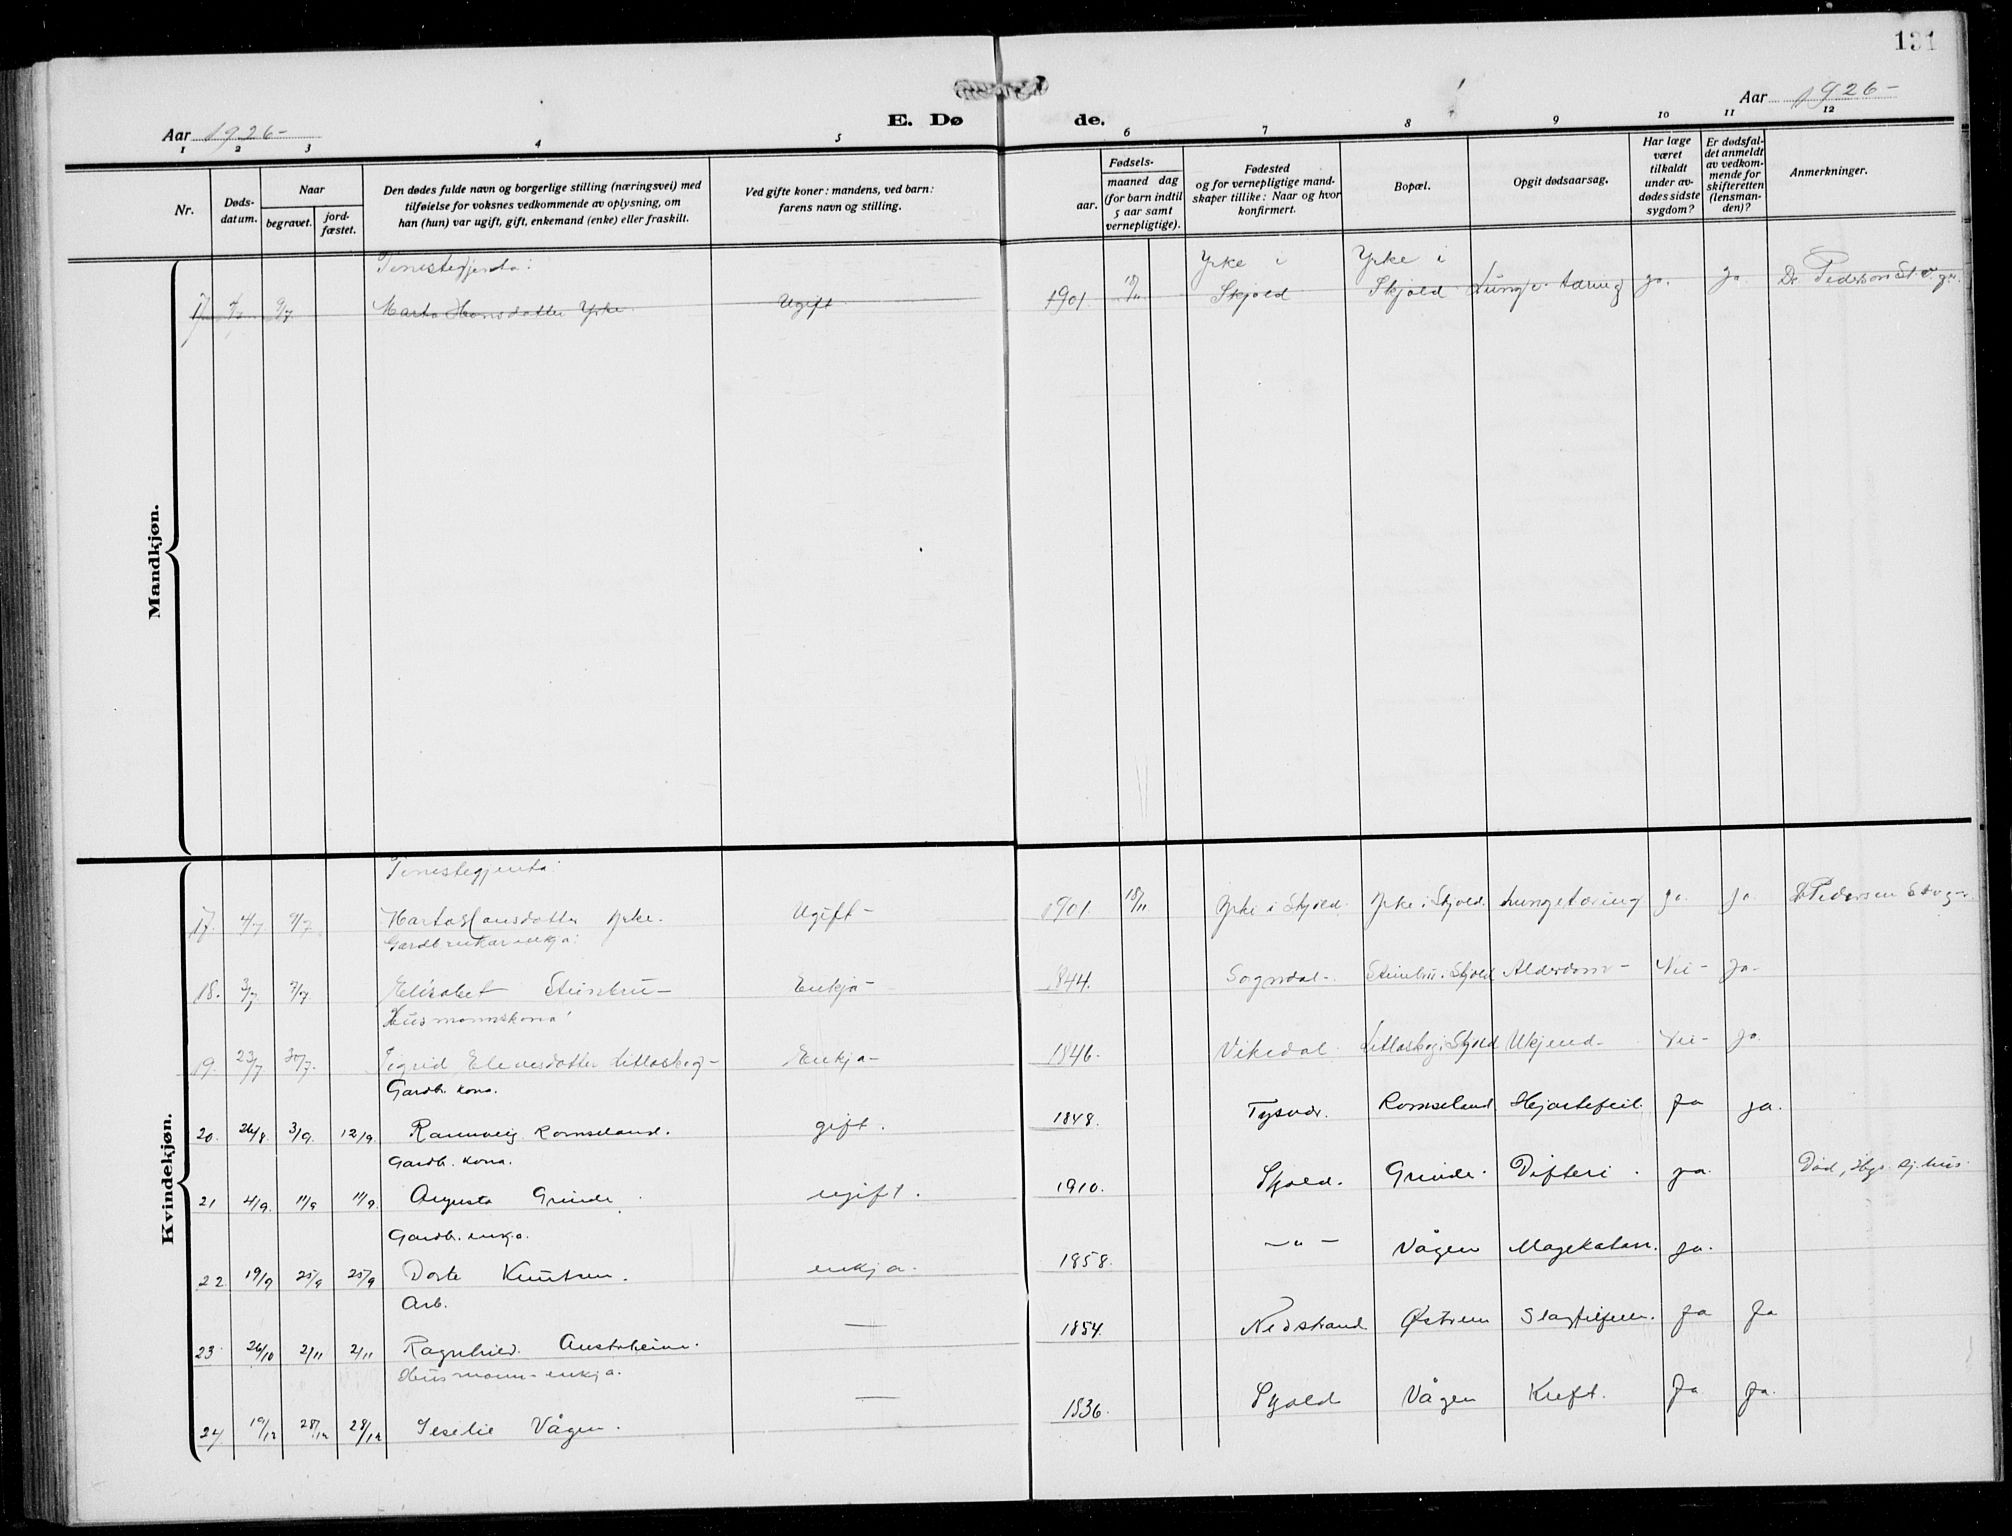 131
Aar 1926-
E. Dø de.
Aar 1926-
1 2 3 4 5 6 7 8 9 10 11 12
Nr.
Døds-
datum.
Naar
begravet.
jord-
fæstet.
Den dødes fulde navn og borgerlige stilling (næringsvei) med
tilføielse for voksnes vedkommende av oplysning, om
han (hun) var ugift, gift, enkemand (enke) eller fraskilt.
Ved gifte koner: mandens, ved barn:
farens navn og stilling.
Fødsels-
aar.
maaned dag
(for barn indtil
5 aar samt
vernepligtige).
Fødested
og for vernepligtige mand-
skaper tillike: Naar og hvor
konfirmert.
Bopæl.
Opgit dødsaarsag.
Har læge
været
tilkaldt
under av-
dødes sidste
sygdom?
Er dødsfal-
det anmeldt
av vedkom-
mende for
skifteretten
(lensman-
den)?
Anmerkninger.
Mandkjøn.
Tenestegjenta: Yrke i Yrke i
17 4/7 9/7 Marta Hansdatter Yrke. Ugift 1901. 18/11 Skjold Skjold Lungetæring ja. ja Dr. Pedersen
Kvindekjøn.
Tenestegjenta:
17. 4/7 9/7 Marta Hansdatter Yrke. Ugift- 1901 18/11 Yrke i Skjold. Yrke i Skjold. Lungetæring ja. ja. Dr Pedersen
Gardbrukarenkja:
18. 3/7 9/7 Elisabet Steinbru- Enkja- 1844. Sogndal- Steinbru i Skjold Alderdom- Nei- ja-
Husmannskona:
19. 23/7 30/7. Sigrid Elenesdatter Litlaskog- Enkja- 1846. Vikedal. Litlaskog i Skjold Ukjend- Nei- ja.
Gardb. kona.
20. 26/8. 3/9. 12/9. Rannveig Romseland. gift. 1848. Tysvær. Romseland Hjartefeil. ja ja.
Gardb. kona.
21 4/9. 11/9 11/9. Augusta Grinde ugift. 1910. Skjold. Grinde. Difteri. ja. Død, Hgs. sj.hus.
Gardb. enkja.
22 19/9 25/9 25/9 Dorte Knutsen. enkja. 1858. -"- Vågen Magekatarr. ja.
Arb.
23 26/10 2/11 2/11 Ragnhild Austrheim. — 1854. Nedstrand Østrem ja ja
Husmann-enkja.
24 19/12 28/12 28/12 Vågen. — 1836. Skjold Vågen Kreft. ja ja.